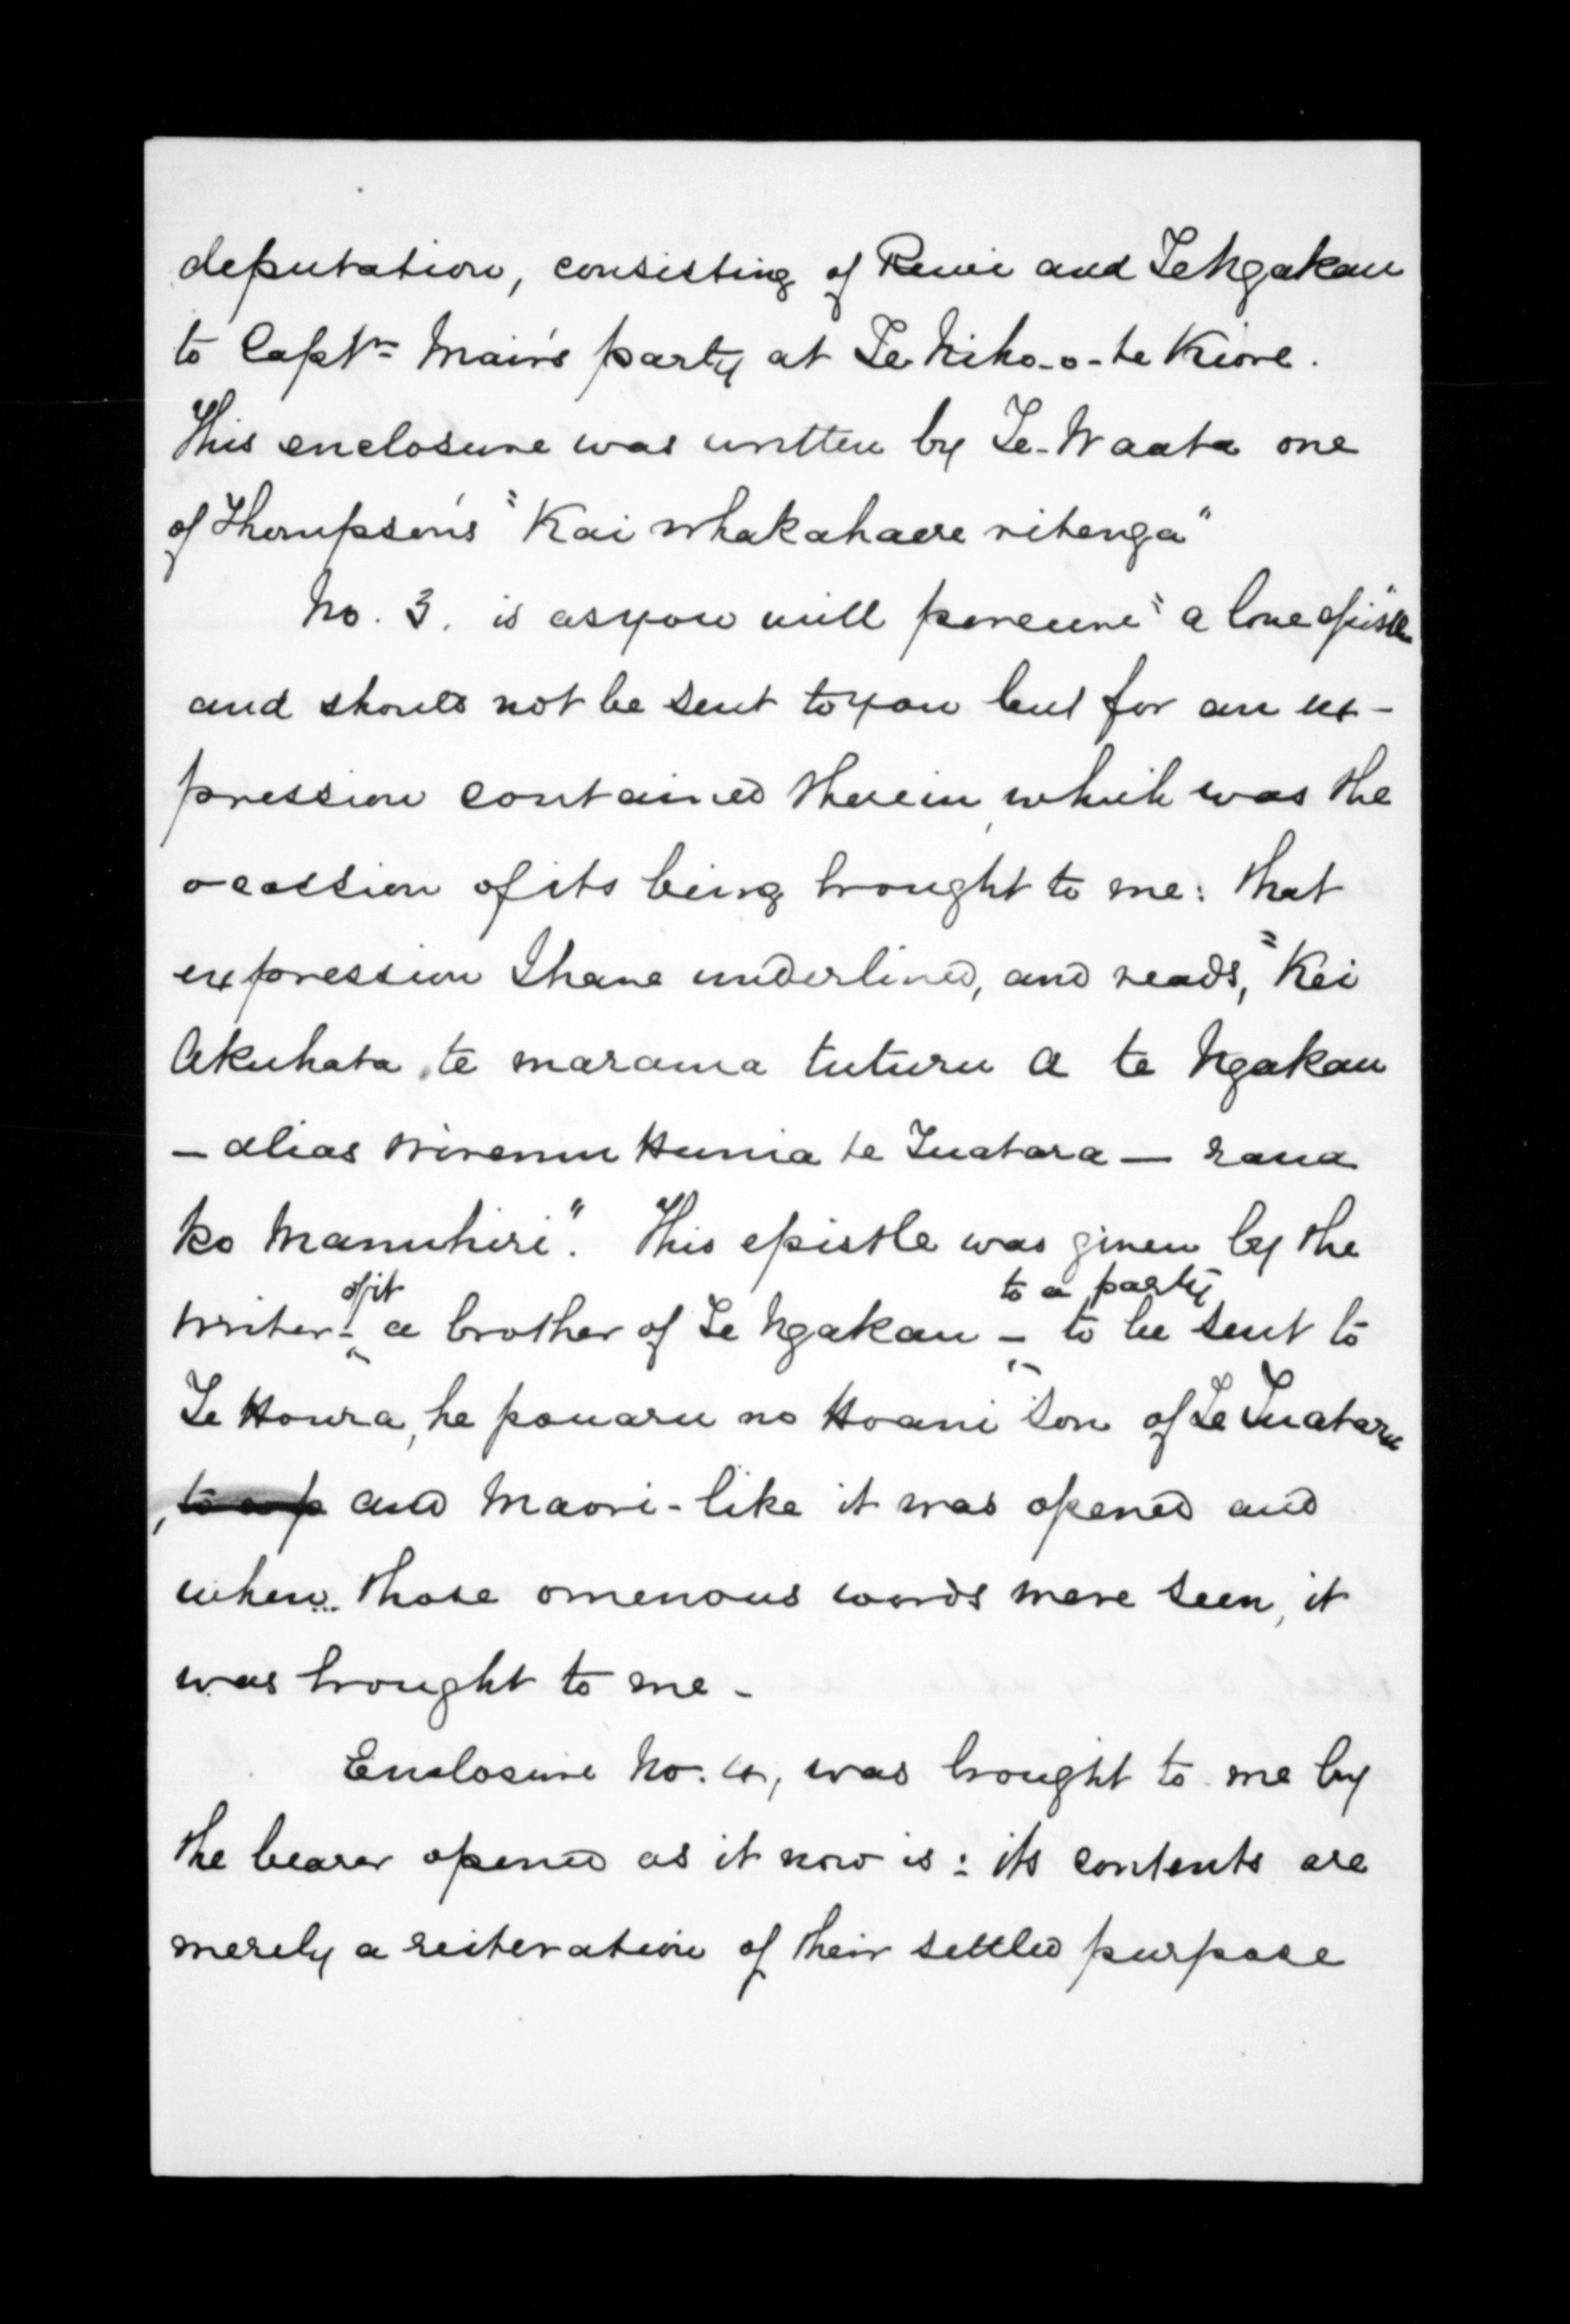 deputation, consisting of Rewi and Te Ngakau
to Captn Mair's party at Te Niho-o-te Kiore.
This enclosure was written by Te-Waata one
of Thompson's "Kai whakahaere ritenga"
No. 3. is as you will perceive "a love epistle"
and should not be sent to you but for an ex-
pression contained therein, which was the
ocassion of its being brought to me: that
expression I have underlined, and reads, "Kei
Akuhata te marama tuturu a te Ngakau
— alias Wiremu Hunia te Tuatara — raua
ko Manuhiri". This epistle was given by the
of it to a party
writer - a brother of Te Ngakau - to be sent to
Te Houra, he pouaru no Hoani son of Te Tuatara
, to a p and Maori-like it was opened and
when those omenous words were seen, it
was brought to me -
Enclosure No. 4, was brought to me by
the bearer opened as it now is: its contents are
merely a reiteration of their settled purpose